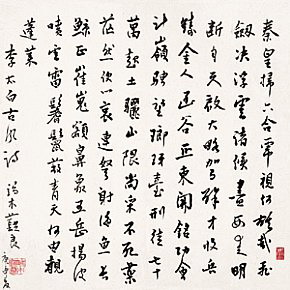 秦皇掃六合虎視何雄哉飛
劍決浮雲諸侯盡西來明
斷自天啟大略駕群才收兵
鑄金人函谷正東開銘功會
稽嶺騁望琅琊臺刑徒七十
萬起土驪山隈尚采不死藥
茫然使心哀連弩射海魚長
鯨正崔嵬額鼻象五岳揚波
噴雲雷鬐鬣蔽青天何由覩
蓬萊
李太白古風詩